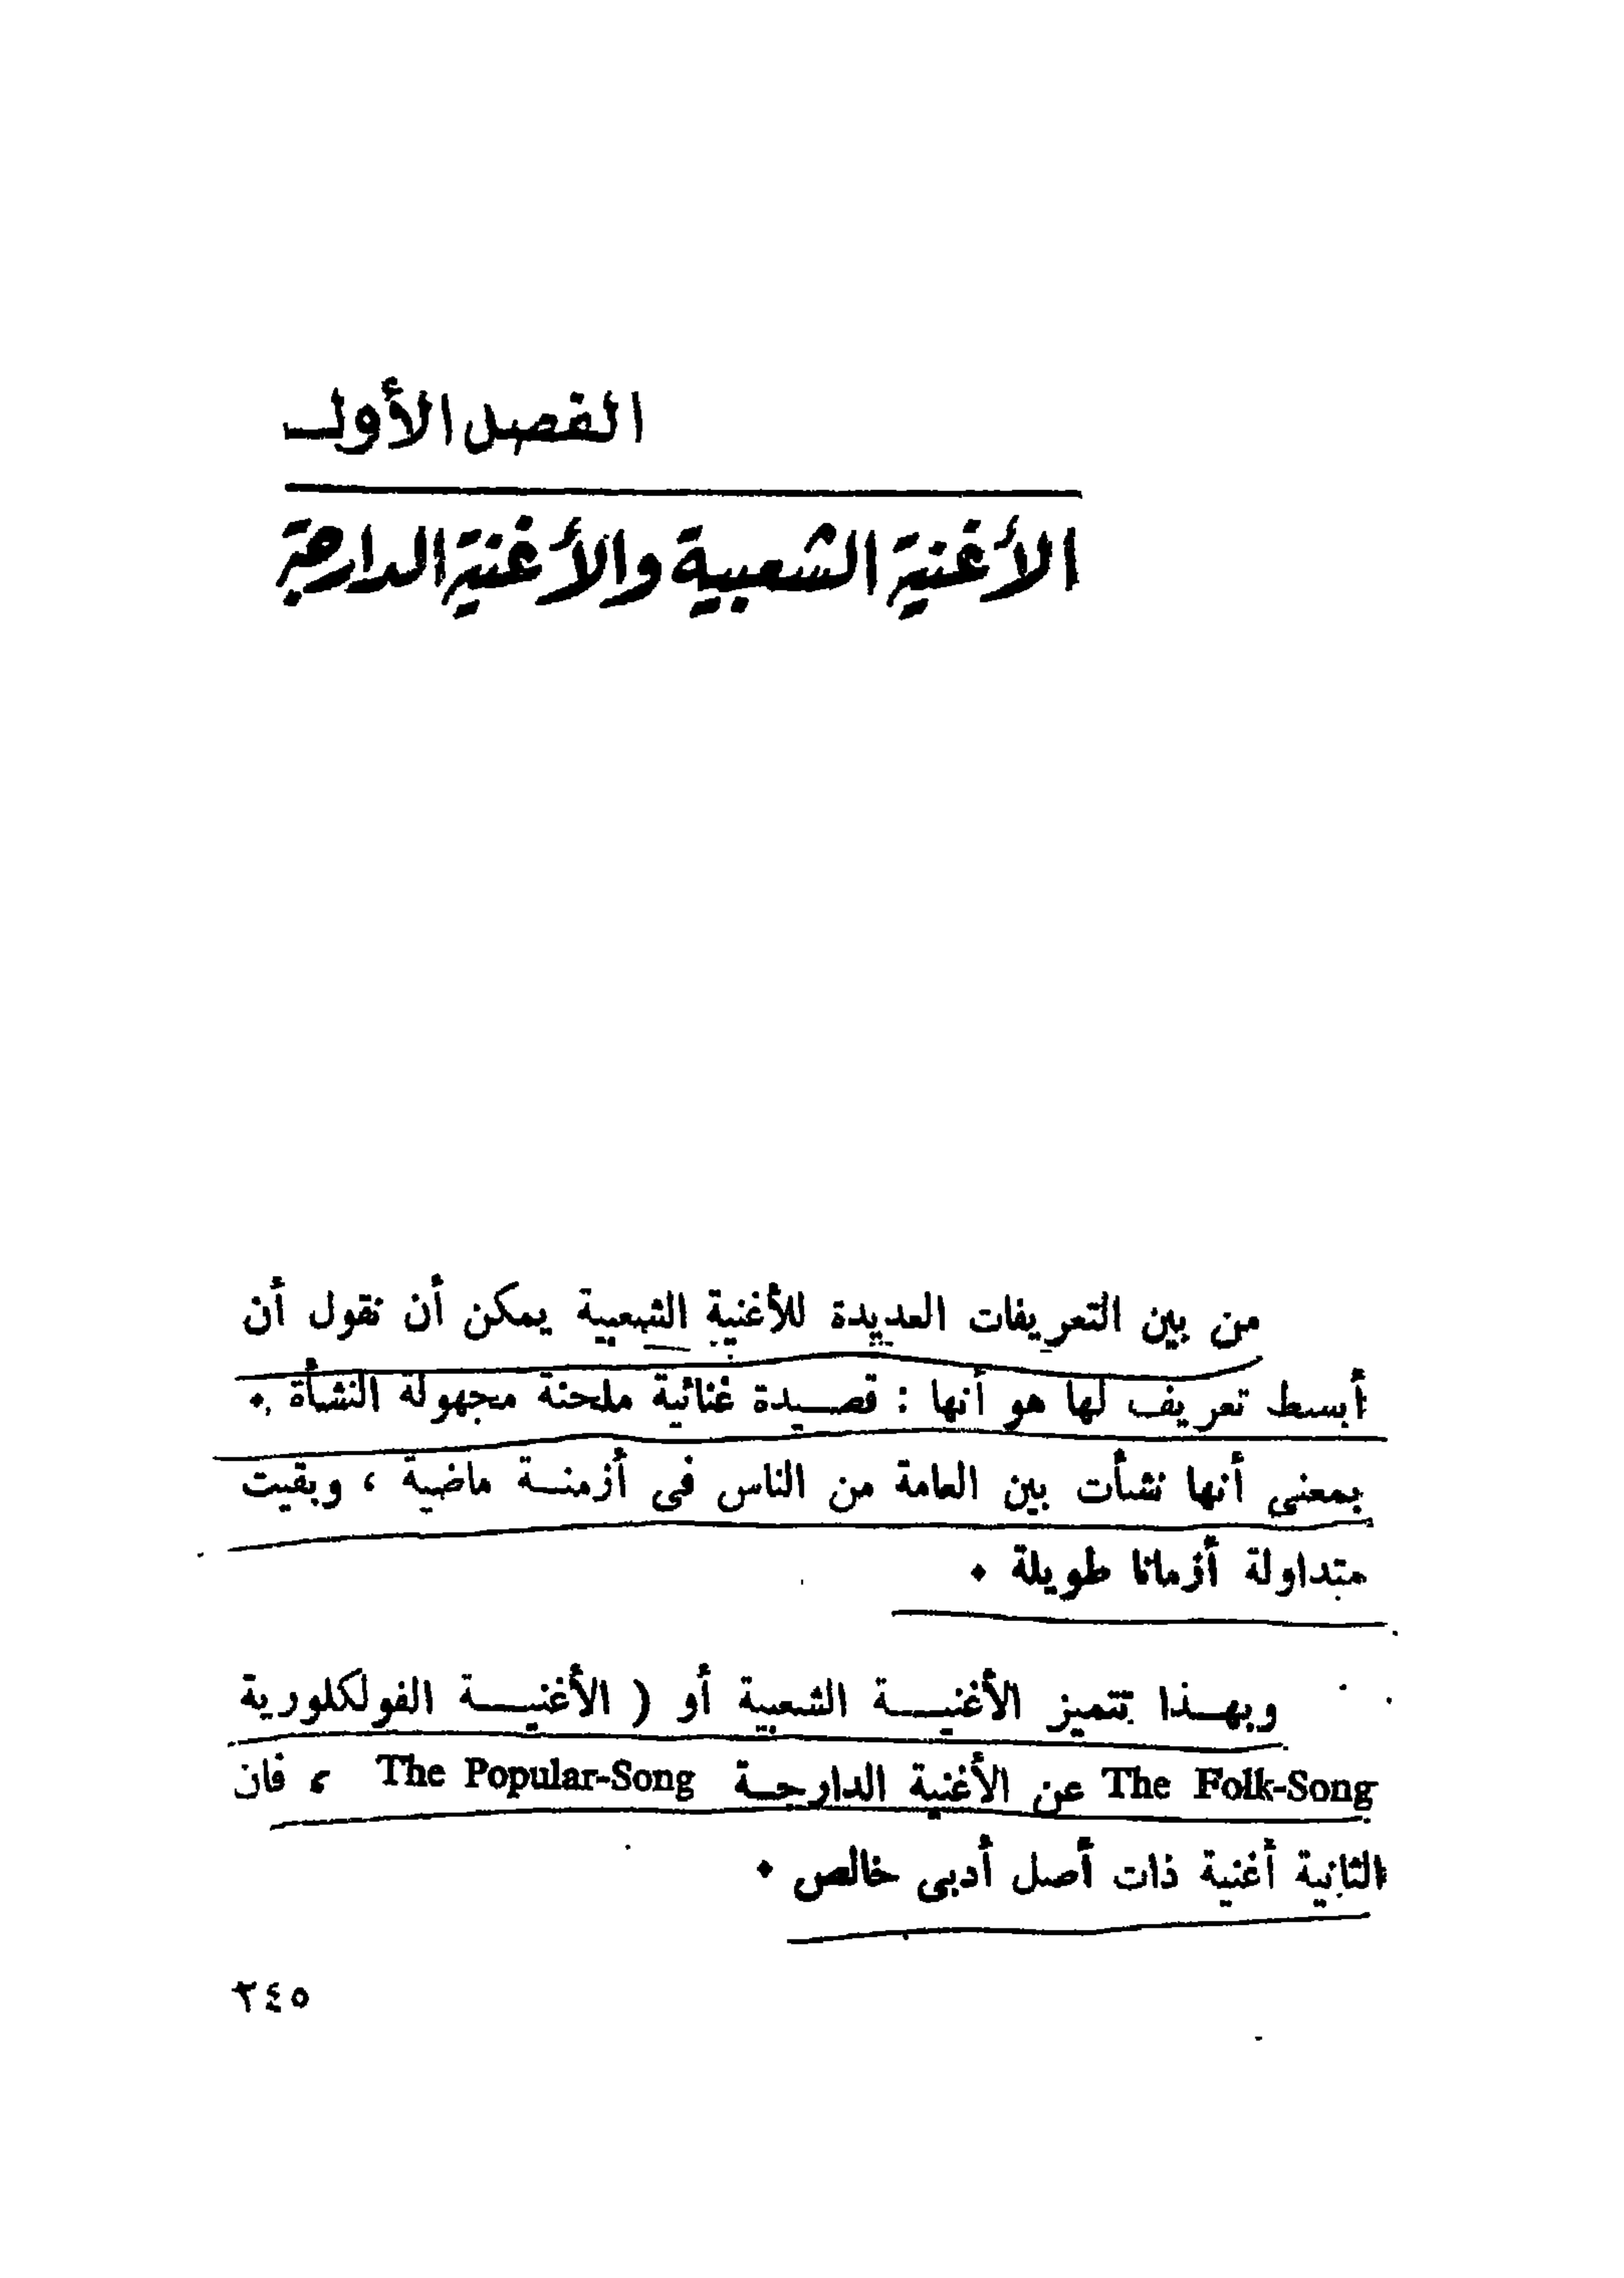 الفصل الأول
الأغنية الشعبية والأغنية الدارجة
من بين التعريفات العديدة للأغنية الشعبية يمكن أن نقول أن
أبسط تعريف لها هو أنها : قصيدة غنائية ملحنة مجهولة النشأة .
بمعنى أنها نشأت بين العامة من الناس فى أزمنة ماضية ، وبقيت
متداولة أزمانا طويلة .
وبهذا تتميز الأغنية الشعبية أو ( الأغنية الفولكلورية
The Folk-Song عن الأغنية الدارجة The Popular-Song ، فان
الثانية أغنية ذات أصل أدبى خالص .
٢٤٥